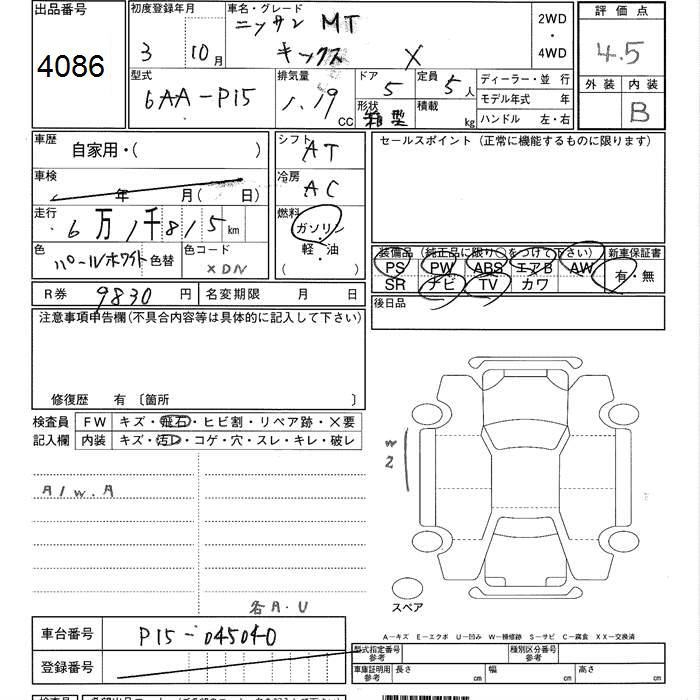 出品番号 初度登録年月 車名・グレード 評価点
4086 3 10月 ニッサン MT 2WD ・ 4WD 4.5
キックス X
外装 内装 B
型式 排気量 ドア 定員 ディーラー・並行
6AA-P15 1.19 CC 5 5人 モデル年式 年
形状 箱型 積載 kg ハンドル 左・右
車歴 自家用・( ) シフト AT セールスポイント(正常に機能するものに限ります)
車検 年 月( 日) 冷房 AC
走行 6万1千815km 燃料 ガソリン
軽・油
( )
色 パールホワイト 色替 色コード XDN
装備品(純正品に限り○をつけて下さい) 新車保証書
PS PW ABS エアB AW 有・無
SR ナビ TV カワ
R券 9830円 名変期限 月 日 後日品
注意事項申告欄(不具合内容等は具体的に記入して下さい)
修復歴 有〔箇所 〕
検査員 FW キズ・飛石・ヒビ割・リペア跡・×要
記入欄 内装 キズ・汚レ・コゲ・穴・スレ・キレ・破レ
W2
A/W.A
各A・U
スペア
A-キズ E-エクボ U-凹み W-補修跡 S-サビ C-腐食 XX-交換済
車台番号 P15-045040
登録番号
型式指定番号 参考 種別区分番号 参考
車庫証明用 参考 長さ cm 幅 cm 高さ cm